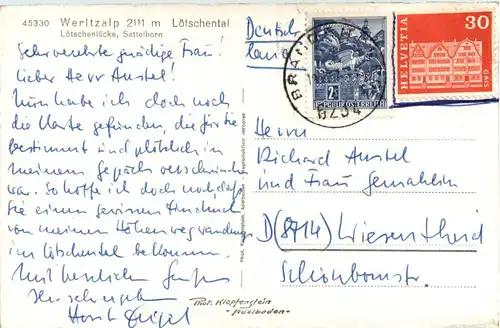 45330 Werltzalp 2111 m Lötschental
Lötschenlücke, Sattelhorn
Sehr verehrte gnädige Frau!
Lieber Herr Anstel!
Nun habe ich doch noch
die Karte gefunden, die für Sie
bestimmt und plötzlich in
meinem Gepäck verschwunden
war. So hoffe ich doch noch, daß
Sie einen gewissen Eindruck
von meinen Höhenwegwanderungen
im Lötschental bekommen.
Mit herzlichen Grüßen
Ihr sehr ergebener
Horst
Phot. Klopfenstein, Adelboden
Deutsch-
land
BRAND
6234
2
REPUBLIK ÖSTERREICH
HELVETIA
30
GAIS
Herrn
Richard Anstel
und Frau Gemahlin
D(8714) Wiesentheid
Schönbornstr.
Phot. Klopfenstein
-Adelboden-